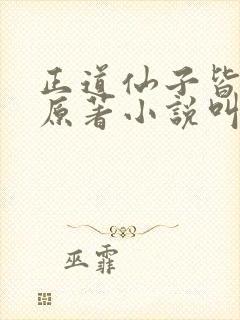 正道仙子皆
原著小說叫
巫霏